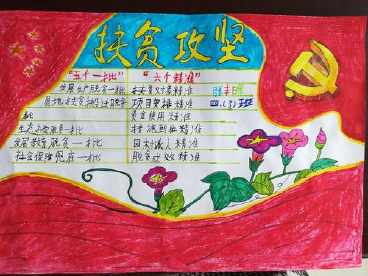 扶贫攻坚
"五个一批"
"六个精准"
发展生产脱贫一批
扶贫对象精准
易地扶贫搬迁脱贫一
批
项目安排精准
资金使用精准
生态补偿脱贫一批
措施到户精准
发展教育脱贫一批
因村派人精准
社会保障兜底一批
脱贫成效精准